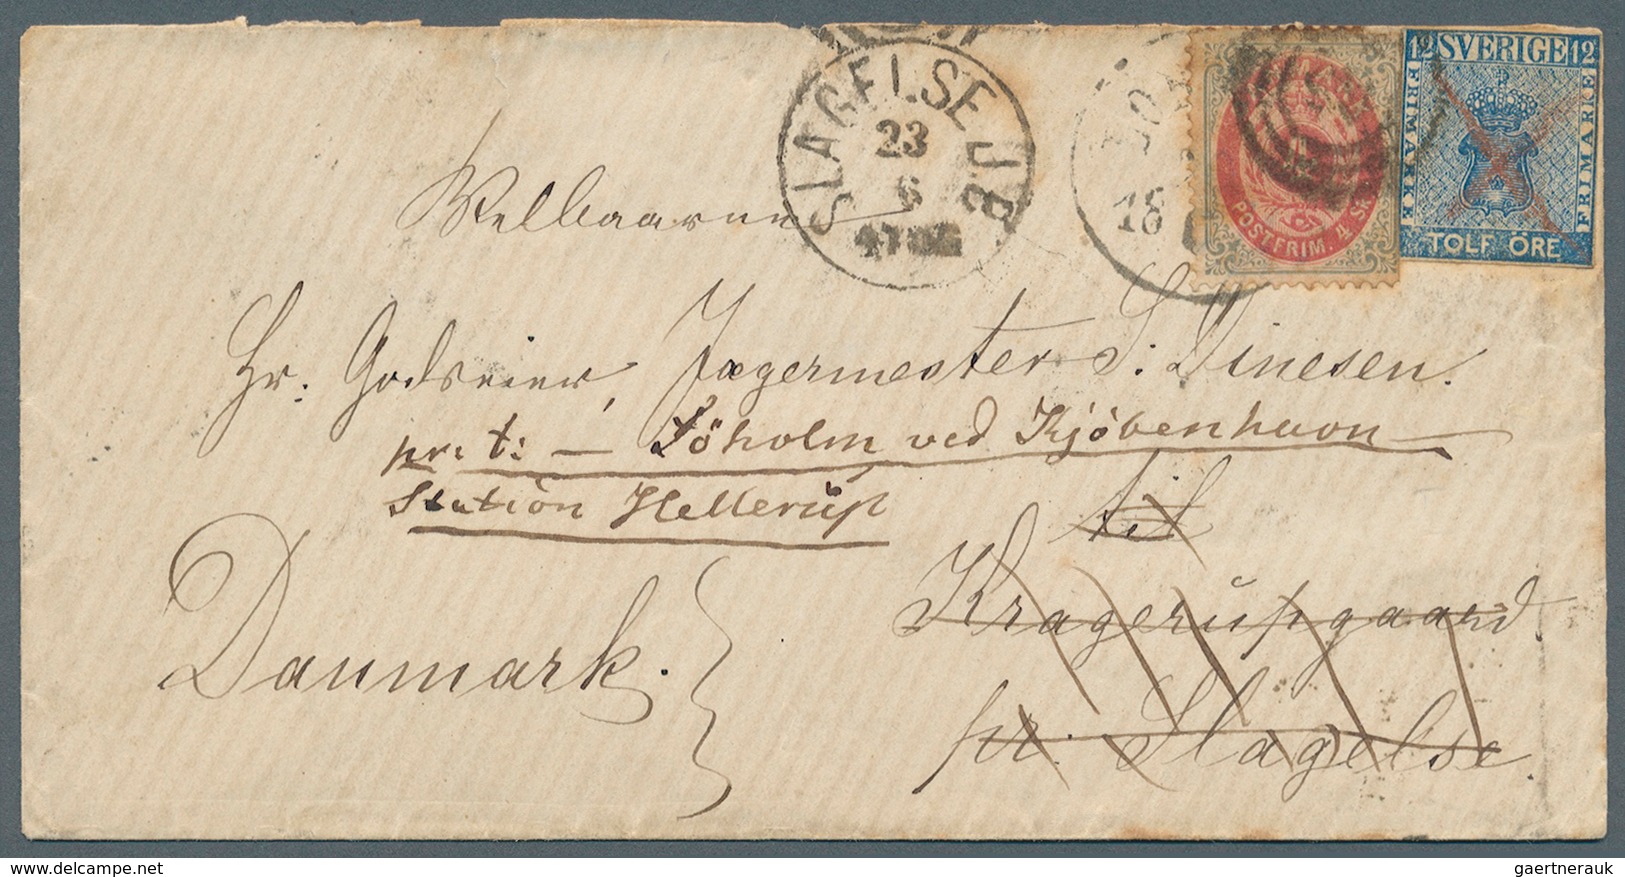 SLAGELSE J B
23
6
18
POSTFRIM. 4 SK
12 SVERIGE 12
FRIMARKE
FRIMARKE
TOLF ÖRE
Velbaarne
Hr. Godseier, Jægermester S. Dinesen.
pr. t: — Söholm ved Kjöbenhavn
Station Hellerup
til
Danmark. Kragerupgaard
pr. Slagelse
gaertnerauk